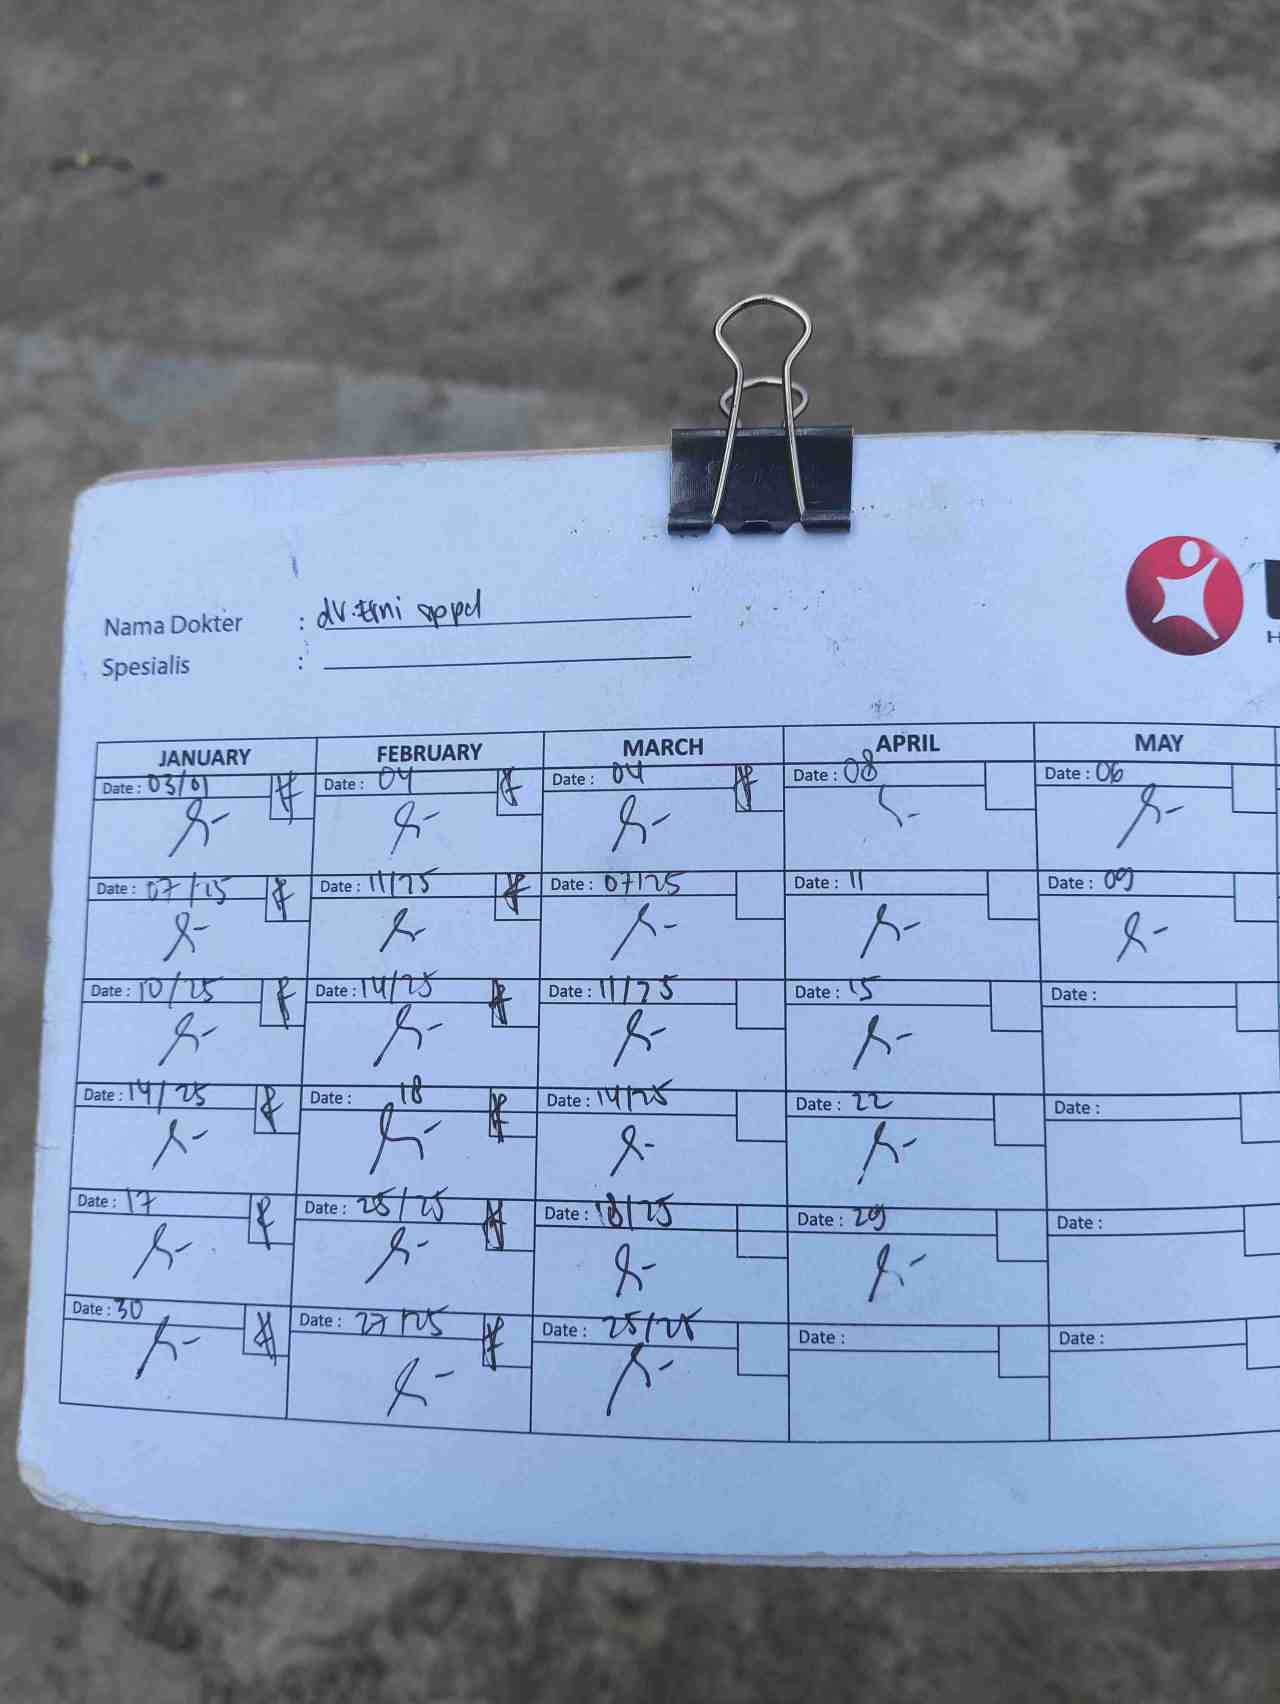 Nama Dokter : dr. Erni sppd
Spesialis :
H
JANUARY FEBRUARY MARCH APRIL MAY
Date : 03/01 Date : 04 Date : 04 Date : 08 Date : 06
Date : 07/25 Date : 11/25 Date : 07/25 Date : 11 Date : 09
Date : 10/25 Date : 14/25 Date : 11/25 Date : 15 Date :
Date : 14/25 Date : 18 Date : 14/25 Date : 22 Date :
Date : 17 Date : 25/25 Date : 18/25 Date : 29 Date :
Date : 30 Date : 27/25 Date : 25/25 Date : Date :